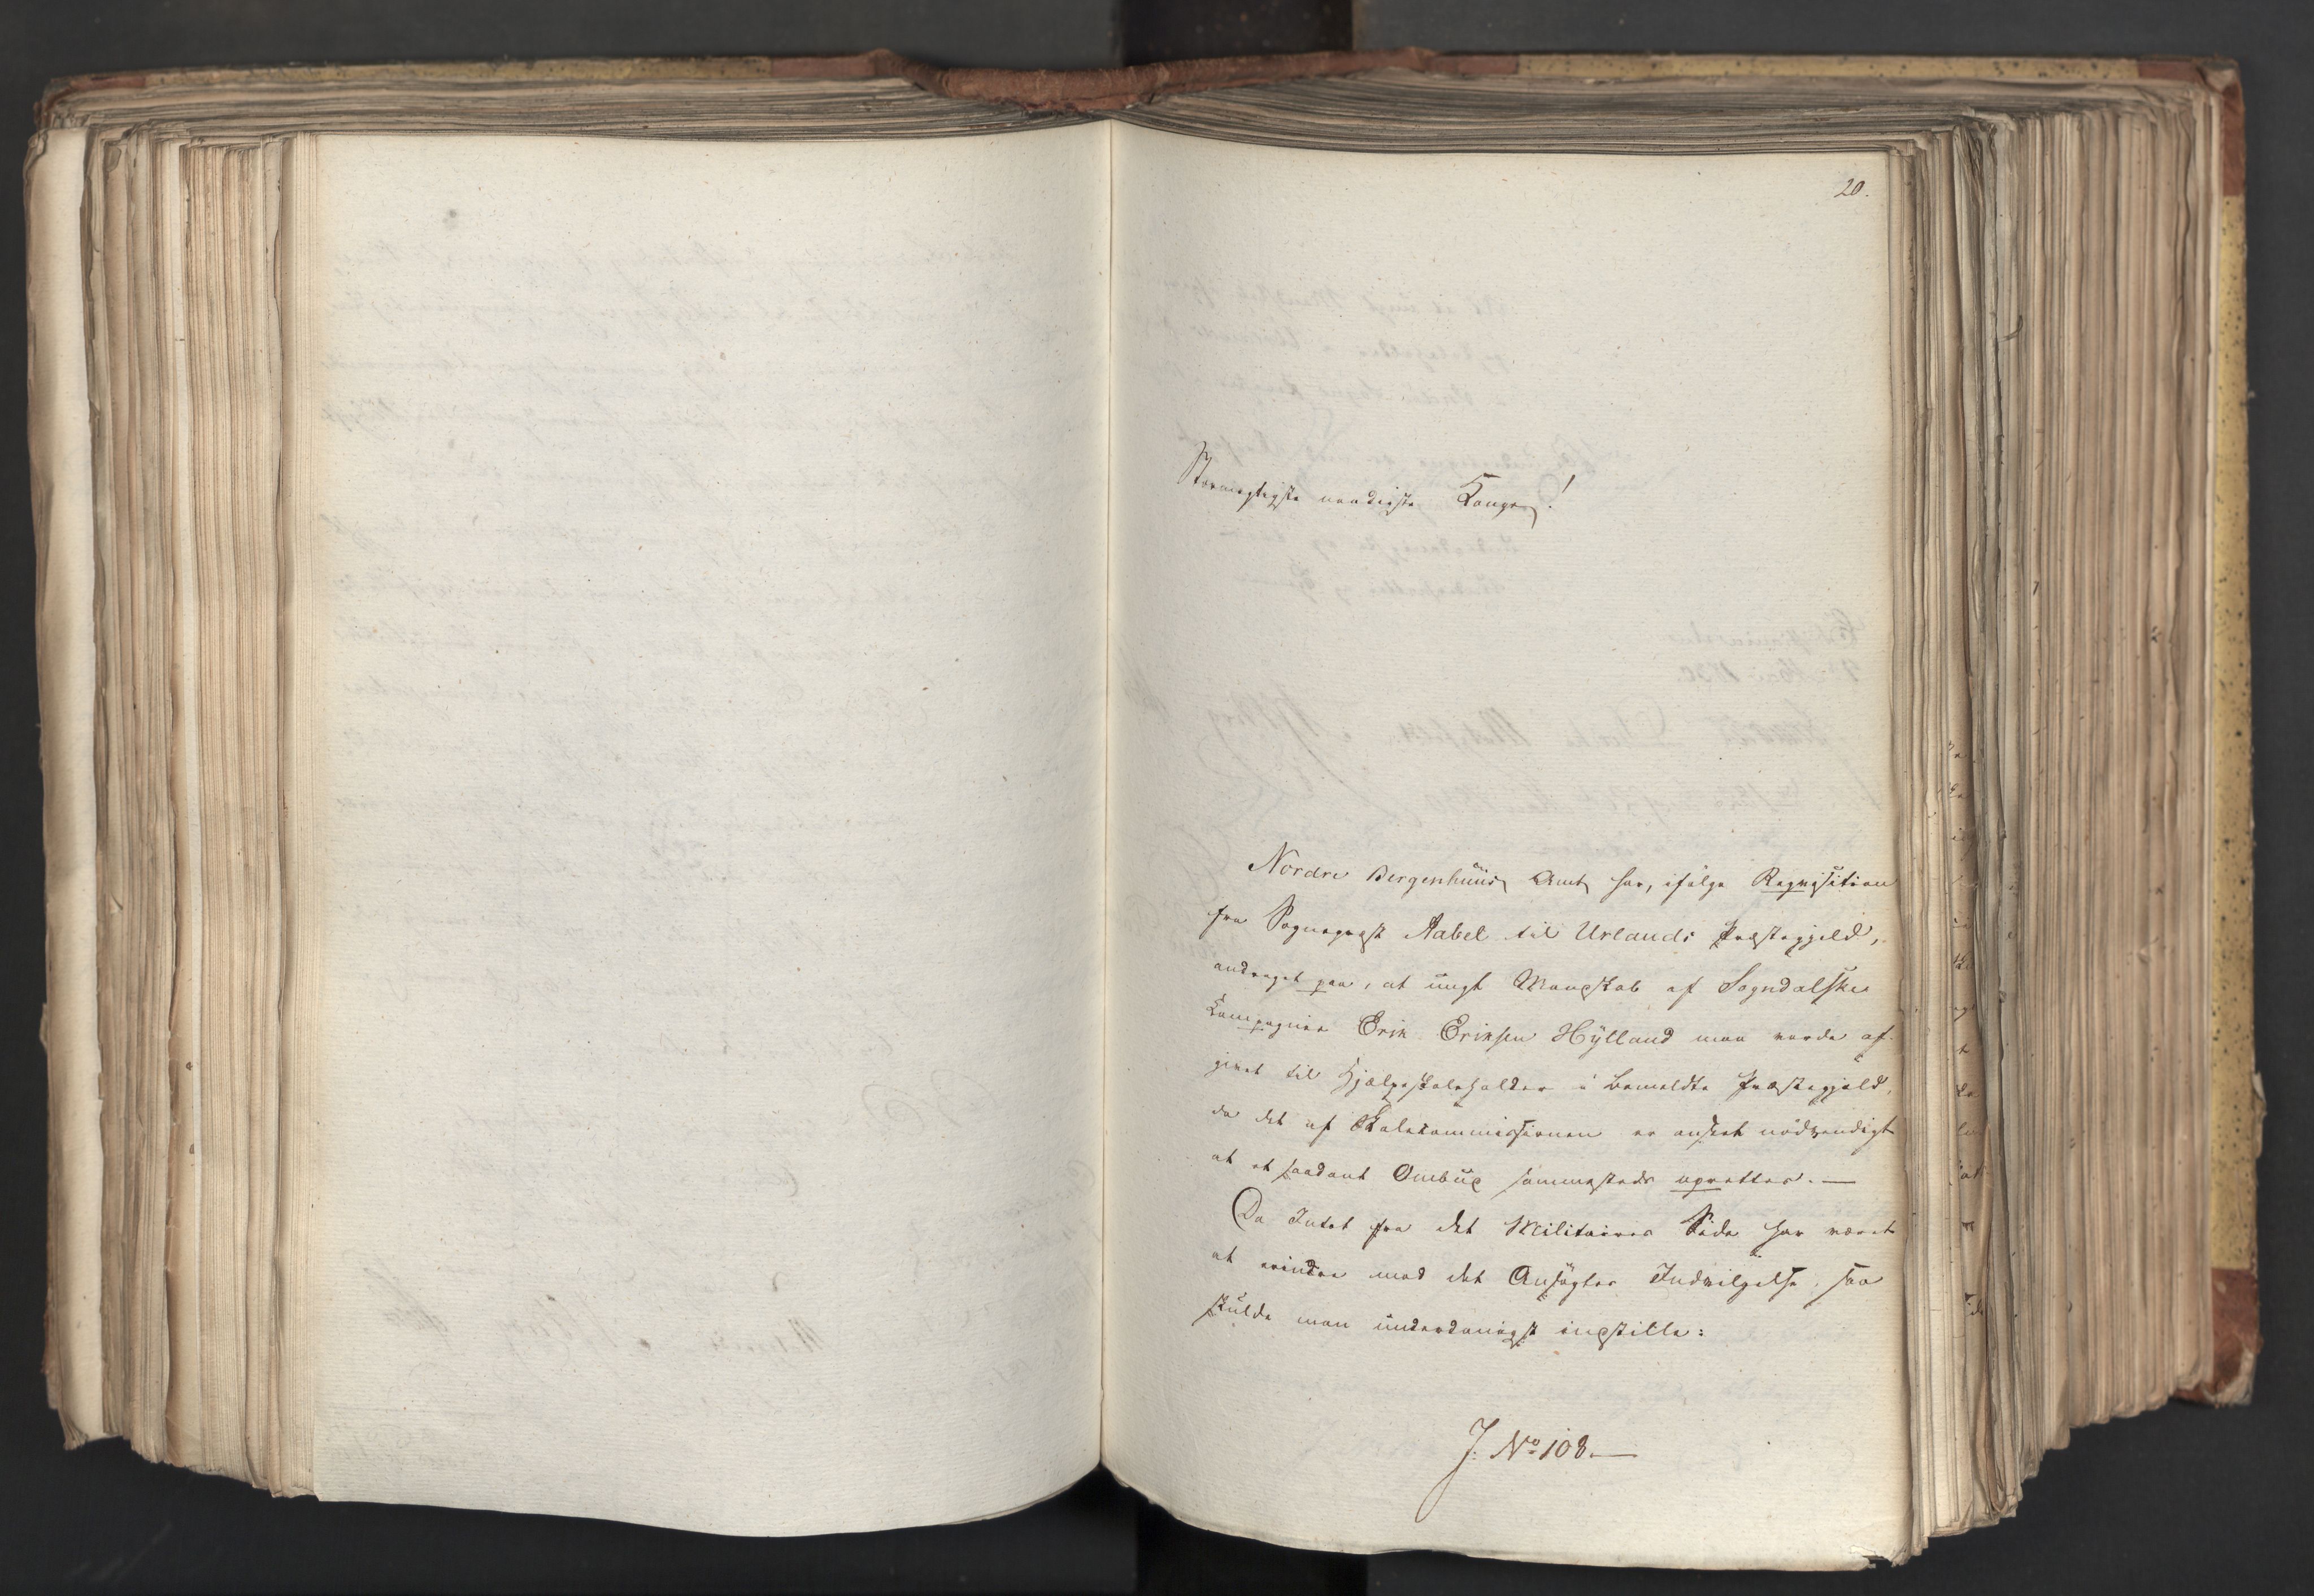 20.
Stormægtigste naadigste Konge!
Nordre Bergenhuus Amt har, ifølge Reqvisition
fra Sognepræst Aabel til Urlands Præstegjeld,
andraget paa, at ungt Mandskab af Sogndalske
Kompagnie Erik Eriksen Hylland maa vorde af-
givet til Hjælpeskoleholder i bemeldte Præstegjeld,
da det af Skolekommissionen er anseet nødvendigt
at et saadant Ombud sammesteds oprettes. —
Da Intet fra det Militaires Side har været
at erindre mod det Ansøgtes Indvilgelse, saa
skulde man underdanigst indstille:
J. No 108. —